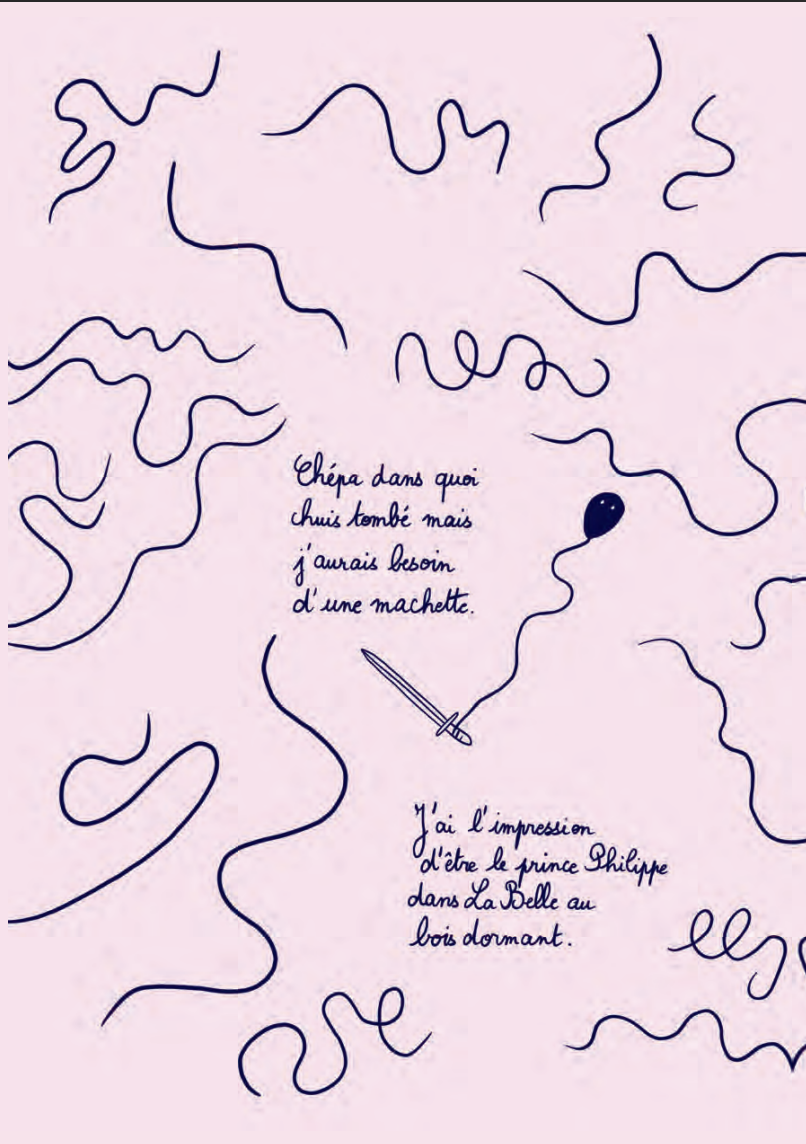 Chépa dans quoi
chuis tombé mais
j'aurais besoin
d'une machette.
J'ai l'impression
d'être le prince Philippe
dans La Belle au
bois dormant.